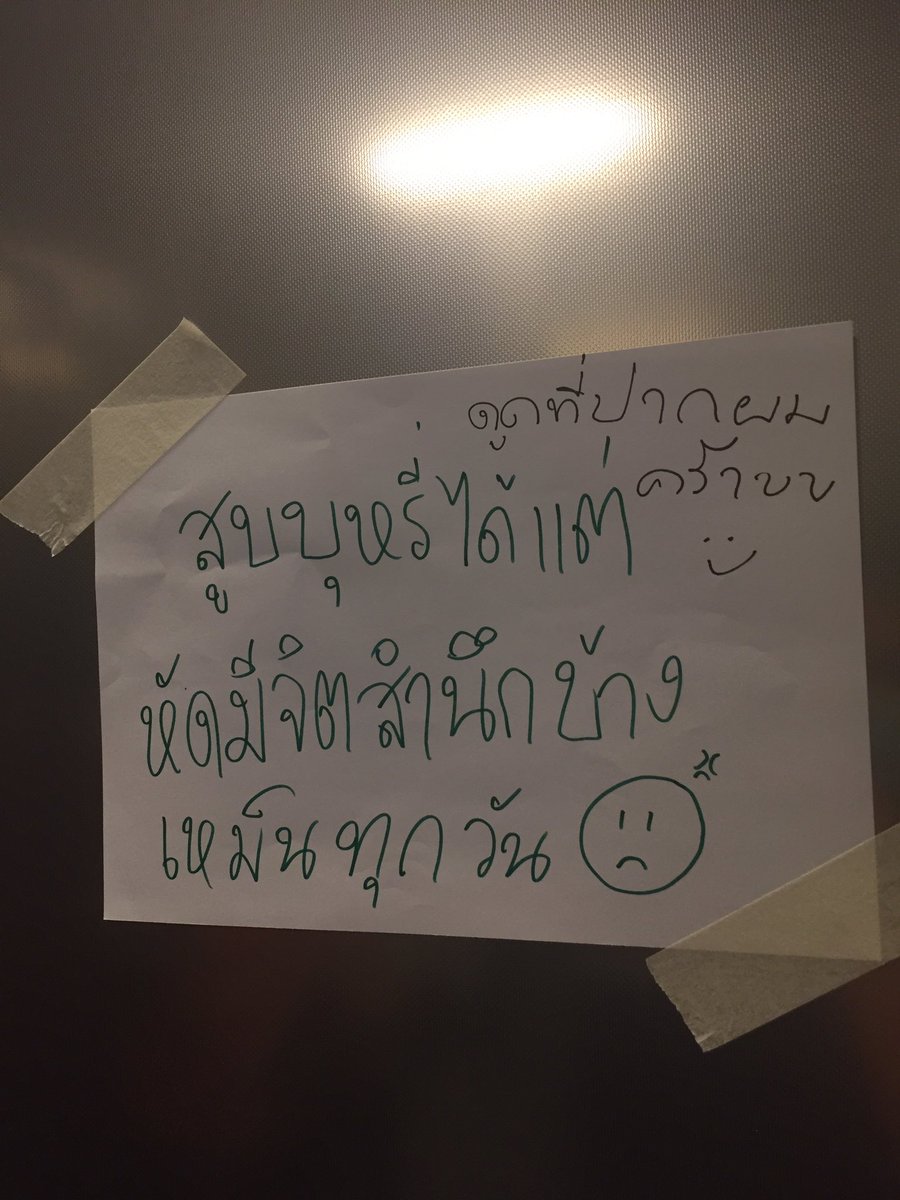 ดูดที่ปากผม
คร้าบบ
สูบบุหรี่ได้แต่
หัดมีจิตสำนึกบ้าง
เหม็นทุกวัน